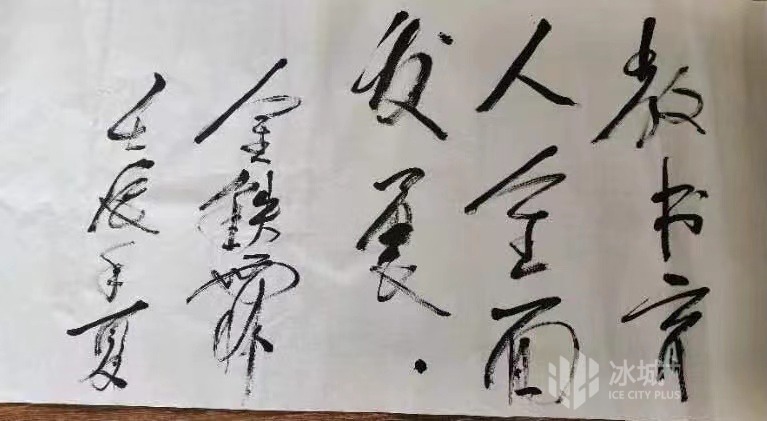 教书育
人全面
发展.
金铁霖
壬辰年夏
冰城+
ICE CITY PLUS